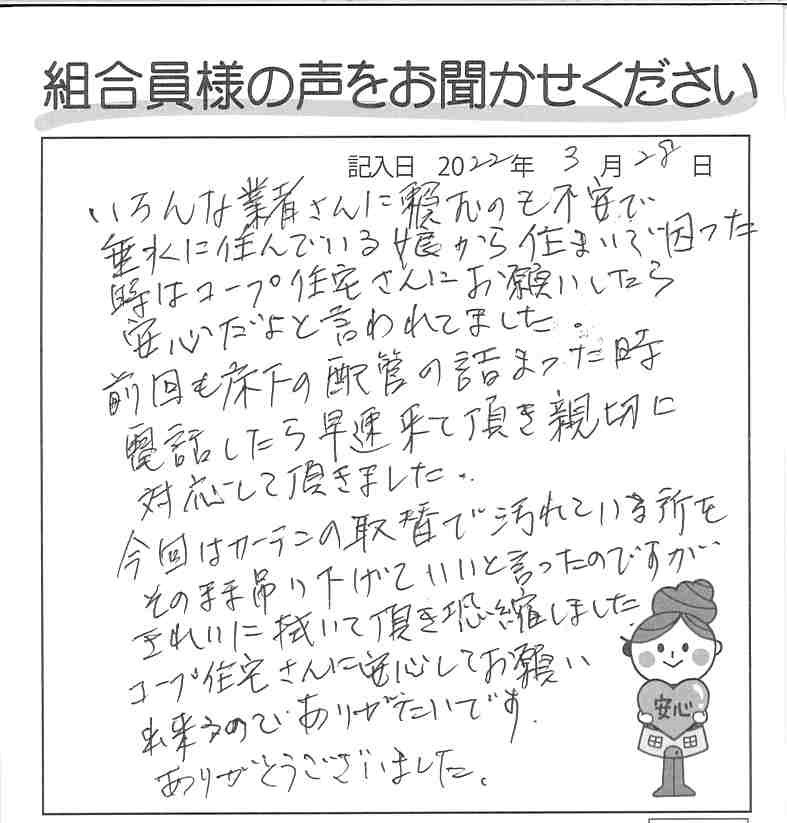 組合員様の声をお聞かせください
記入日 2022年 3月 28日
いろんな業者さんに頼むのも不安で
垂水に住んでいる娘から住まいで困った
時はコープ住宅さんにお願いしたら
安心だよと言われてました。
前回も床下の配管の詰まった時
電話したら早速来て頂き親切に
対応して頂きました。
今回はカーテンの取替で汚れている所を
そのまま吊り下げていいと言ったのですが
きれいに拭いて頂き恐縮しました
コープ住宅さんに安心してお願い
出来るのでありがたいです。
ありがとうございました。
安心